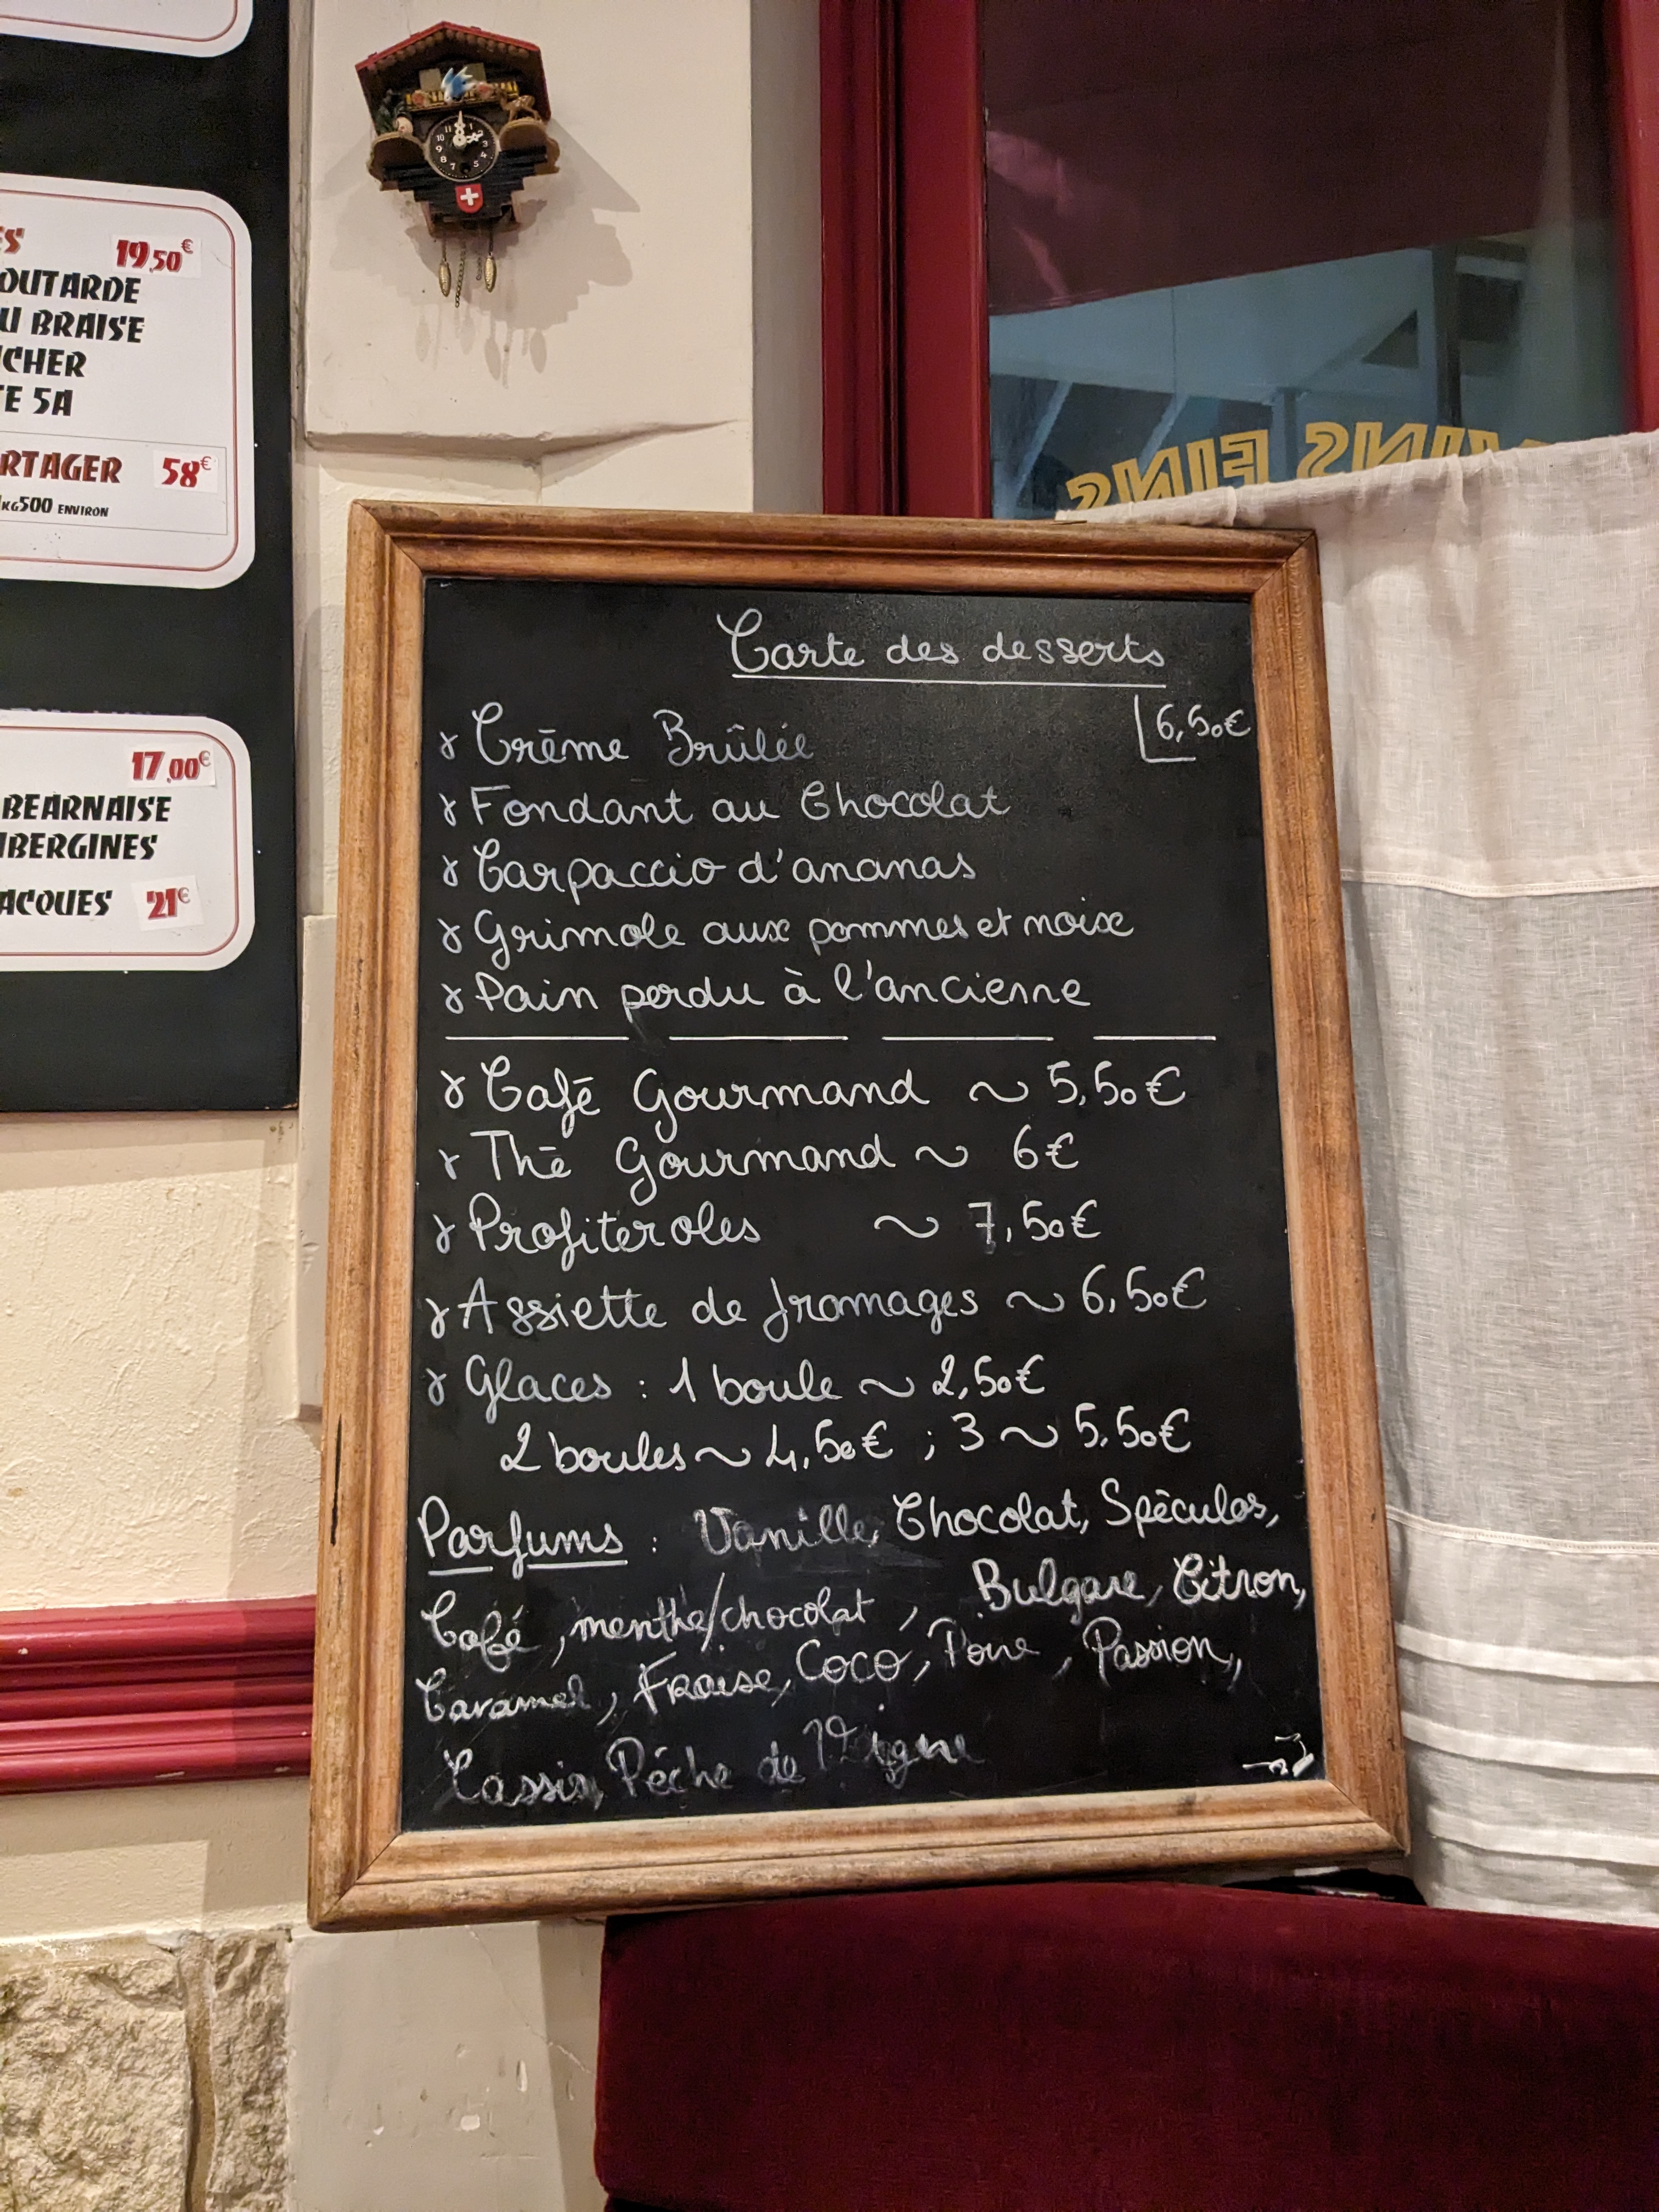 ES 19,50€
OUTARDE
U BRAISE
CHER
TE 5A
RTAGER 58€
KG500 ENVIRON
17,00€
BEARNAISE
BERGINES
ACQUES 21€
VINS FINS
Carte des desserts
Crēme Brûlée 6,50€
Fondant au Chocolat
Carpaccio d'ananas
Grimole aux pommes et noix
Pain perdu à l'ancienne
Cafē Gourmand ~ 5,50€
Thē Gourmand ~ 6€
Profiteroles ~ 7,50€
Assiette de fromages ~ 6,50€
Glaces : 1 boule ~ 2,50€
2 boules ~ 4,50€ ; 3 ~ 5,50€
Parfums : Vanille, Chocolat, Spēculos,
Café, menthe/chocolat, Bulgare, Citron,
Caramel, Fraise, Coco, Poire, Passion,
Cassis, Pêche de Vigne